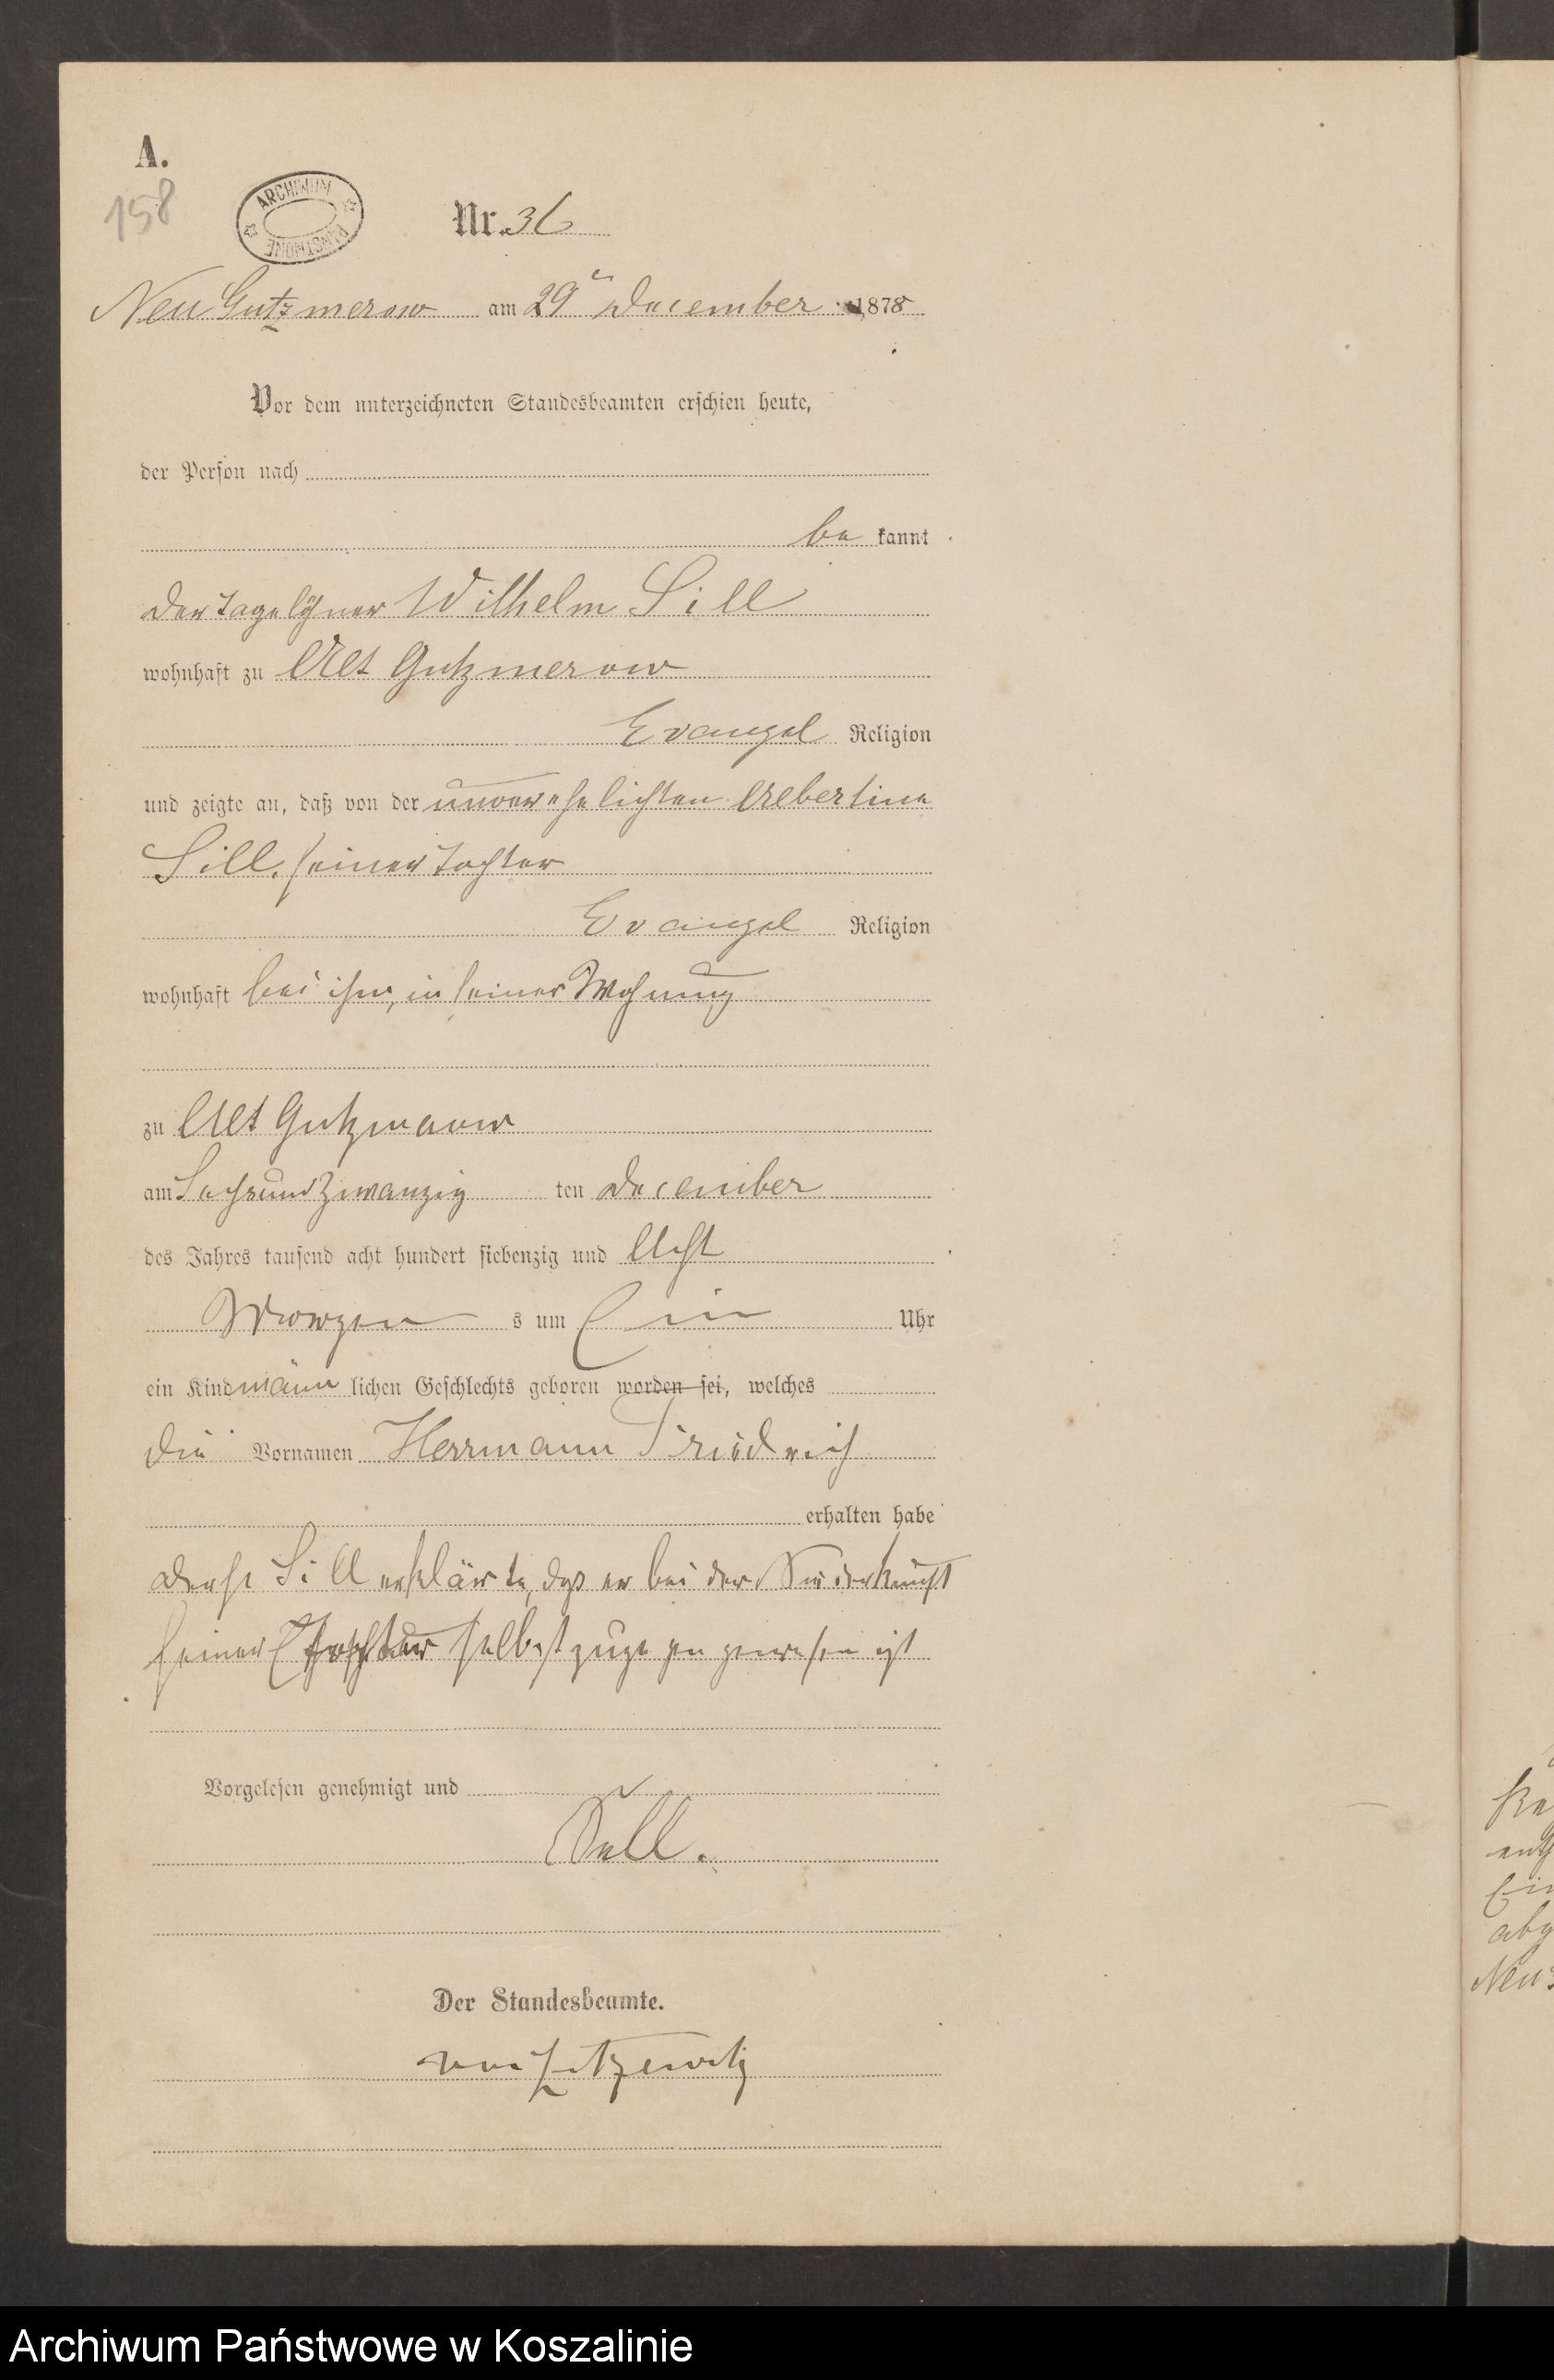 A.
158
ARCHIWUM PAŃSTWOWE
Nr. 36
Neu Gutzmerow am 29ᵗ December 1878
Vor dem unterzeichneten Standesbeamten erschien heute,
der Person nach
be kannt
der Tagelöhner Wilhelm Sill
wohnhaft zu Alt Gutzmerow
Evangel Religion
und zeigte an, daß von der unverehelichten Albertine
Sill, seiner Tochter
Evangel Religion
wohnhaft bei ihm, in seiner Wohnung
zu Alt Gutzmerow
am Sechsundzwanzig ten December
des Jahres tausend acht hundert siebenzig und Acht
Morgen s um Ein Uhr
ein Kind männ lichen Geschlechts geboren worden sei, welches
die Vornamen Herrmann Friedrich
erhalten habe
Sill erklärte, daß er bei der Niederkunft
seiner Tochter selbst zugegen gewesen ist
Vorgelesen genehmigt und
Sell.
Der Standesbeamte.
von Zitzewitz
abg
Neu
Archiwum Państwowe w Koszalinie